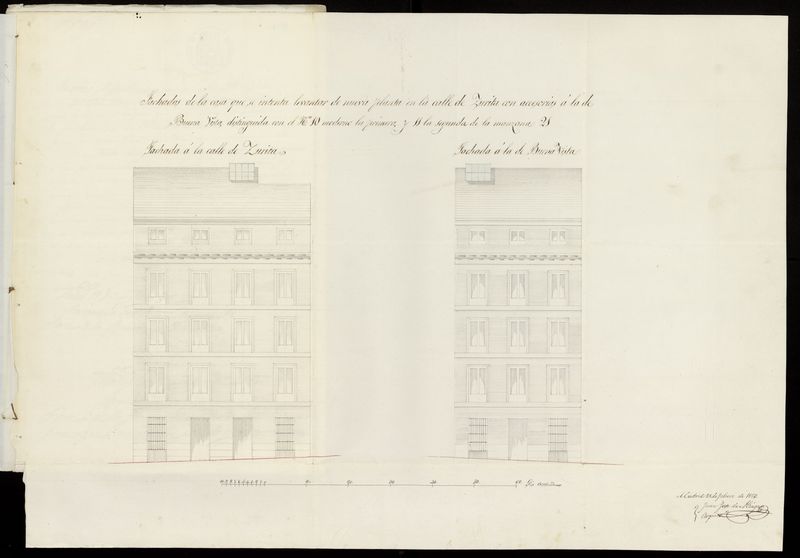 Fachadas de la casa que se intenta levantar de nueva planta en la calle de Zurita con accesorias á la de
Buena Vista, distinguida con el Nº 10 moderno la primera y 11 la segunda de la manzana 21
Fachada á la calle de Zurita.
Fachada á la de Buena Vista
10 20 30 40 50 60 Pies
Madrid de Febrero de 1852
Juan José de